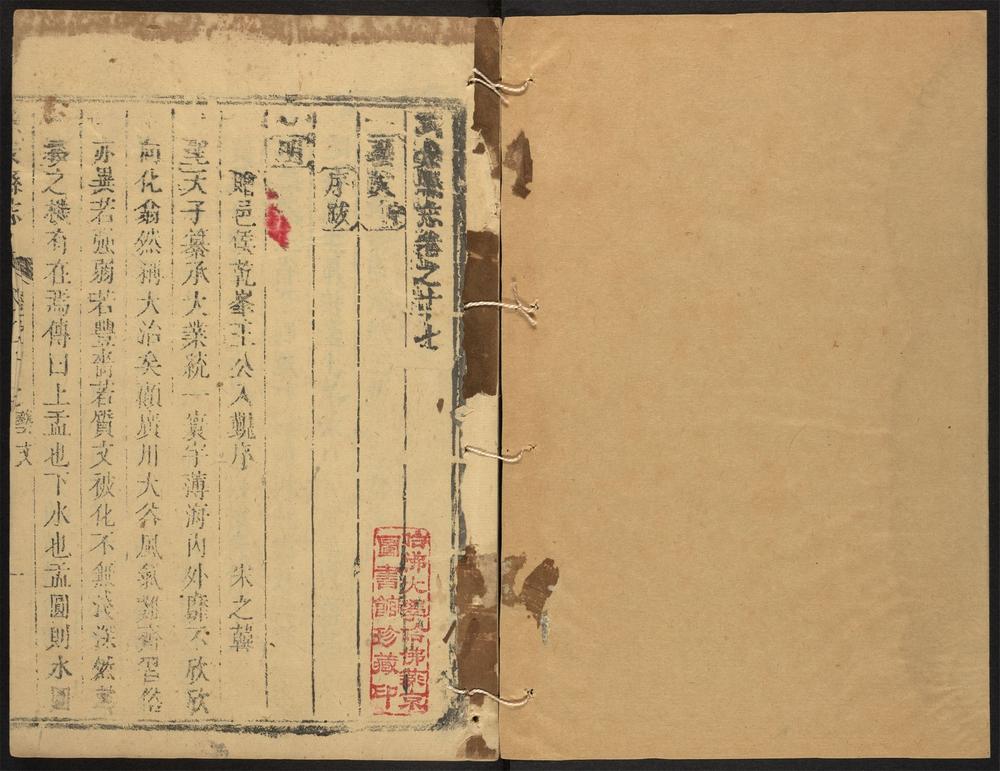 縣志卷之廿七
藝文
序跋
明
贈邑侯乾峯王公入覲序 宋之韓
聖天子纂承大業統一寰宇薄海內外靡不欣欣
向化翕然稱大治矣顧廣川大谷風氣難齊習
亦異若強弱若豐嗇若質文被化不無淺深然
之機有在焉傳曰上盂也下水也盂圓則水圓
縣志
藝文
哈佛大學哈佛燕京
圖書館珍藏印